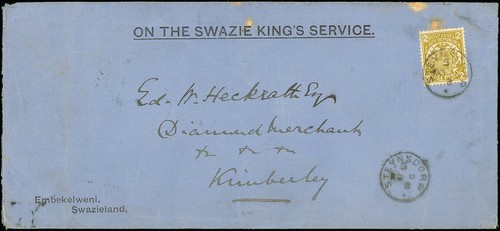 ON THE SWAZIE KING'S SERVICE.
Ed. W. Heckrath Esq
Diamond Merchant
Kimberley
Embekelweni,
Swazieland,
STEYNSDORP